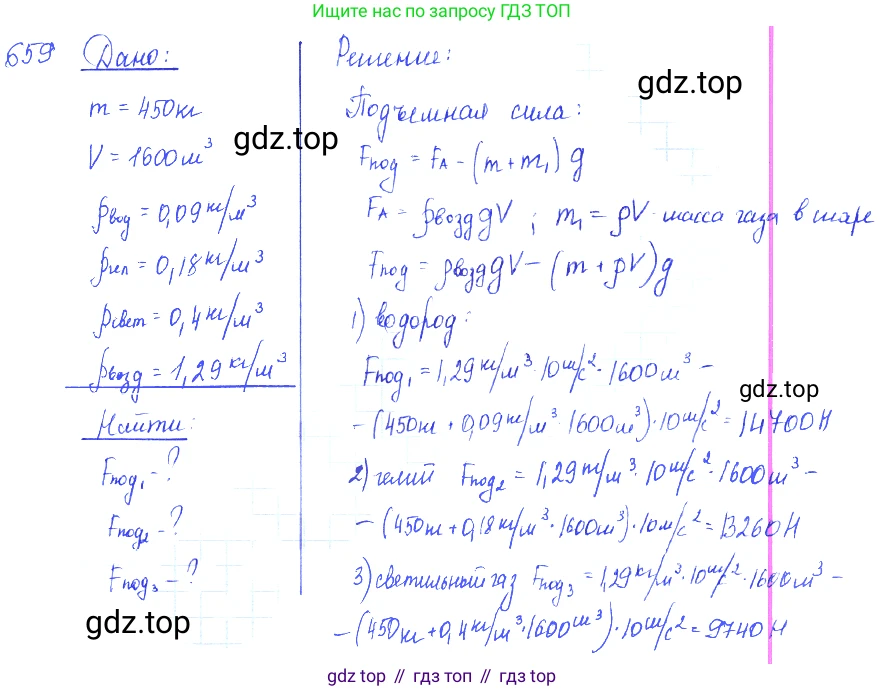 Ищите нас по запросу ГДЗ ТОП
659 Дано:
m = 450кг
V = 1600м³
ρвод = 0,09 кг/м³
ρгел = 0,18 кг/м³
ρсвет = 0,4 кг/м³
ρвозд = 1,29 кг/м³
Найти:
Fпод₁ - ?
Fпод₂ - ?
Fпод₃ - ?
Решение:
Подъемная сила:
Fпод = FА - (m + m₁) g
FА = ρвозд gV ; m₁ = ρV - масса газа в шаре
Fпод = ρвозд gV - (m + ρV) g
1) водород:
Fпод₁ = 1,29 кг/м³ · 10 м/с² · 1600 м³ -
- (450кг + 0,09 кг/м³ · 1600 м³) · 10 м/с² = 14700 Н
2) гелий Fпод₂ = 1,29 кг/м³ · 10 м/с² · 1600 м³ -
- (450кг + 0,18 кг/м³ · 1600м³) · 10 м/с² = 13260 Н
3) светильный газ Fпод₃ = 1,29 кг/м³ · 10 м/с² · 1600 м³ -
- (450 кг + 0,4 кг/м³ · 1600 м³) · 10 м/с² = 9740 Н
gdz.top
gdz.top
gdz.top
gdz.top
gdz.top // гдз топ // гдз.top